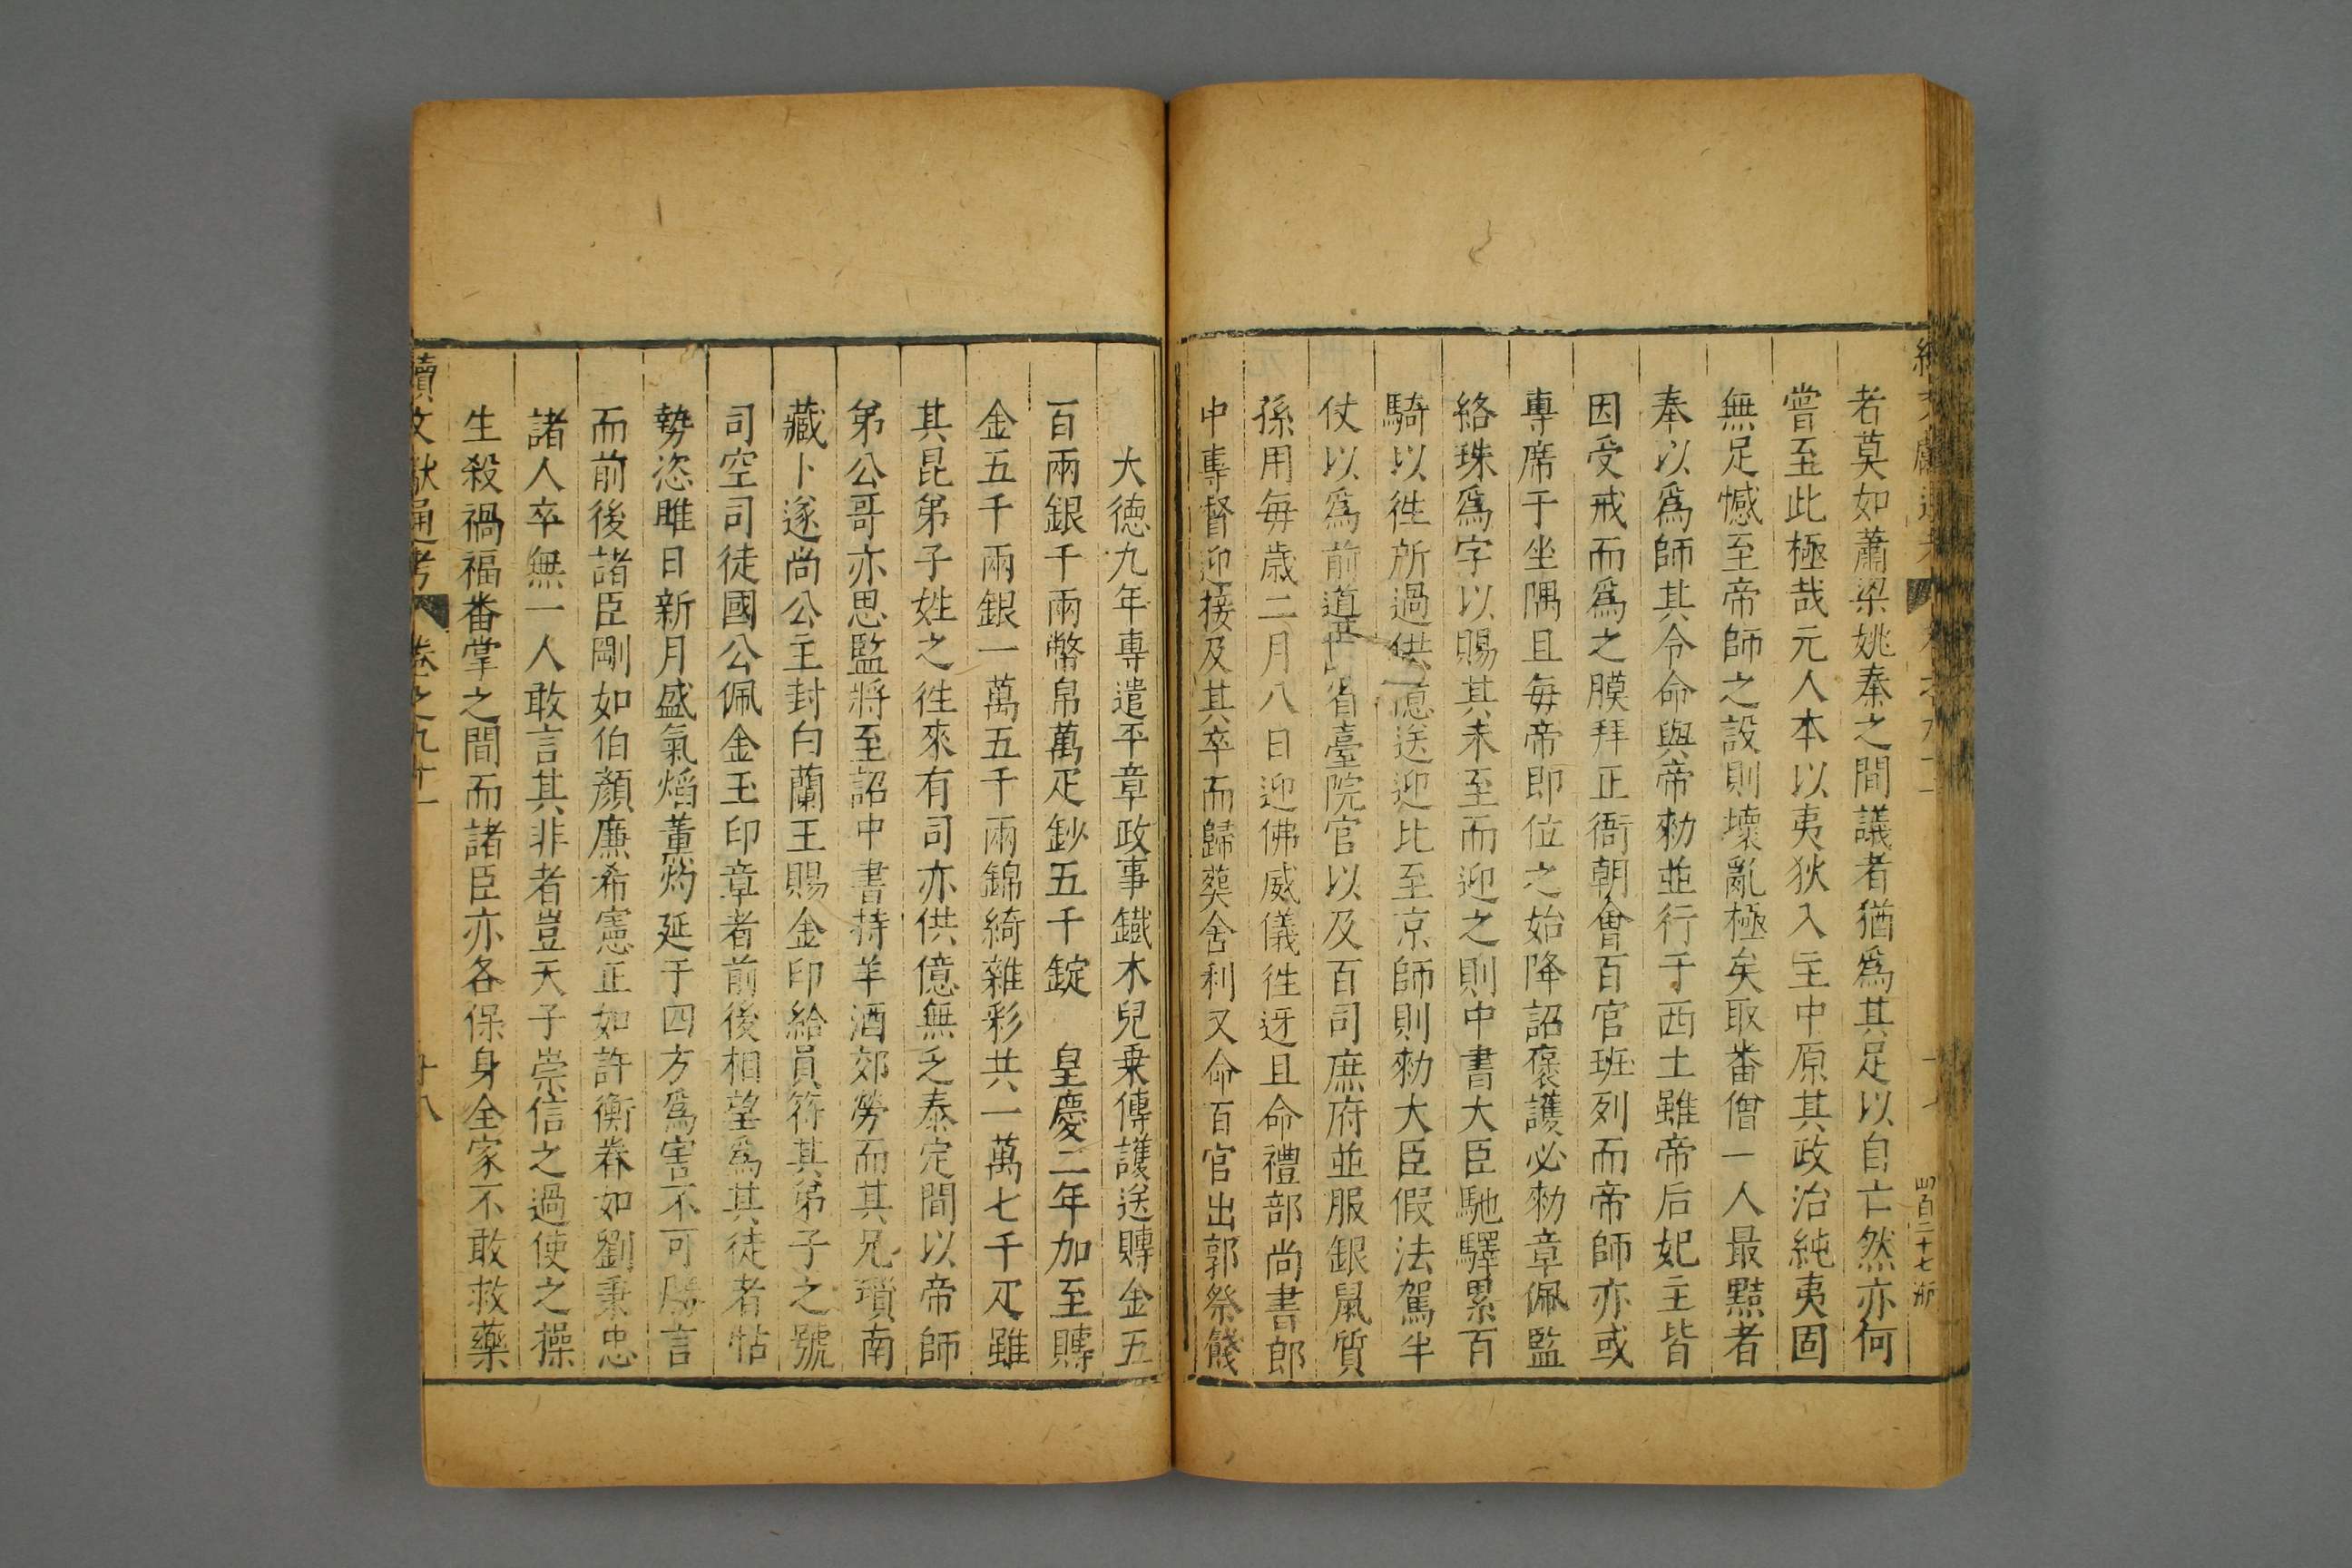 者莫如蕭梁姚秦之間議者猶爲其足以自亡然亦何
嘗至此極哉元人本以夷狄入主中原其政治純夷固
無足憾至帝師之設則壞亂極矣取番僧一人最黠者
奉以爲師其令命與帝勑並行于西土雖帝后妃主皆
因受戒而爲之膜拜正衙朝會百官班列而帝師亦或
專席于坐隅且每帝即位之始降詔褒護必勑章佩監
絡珠爲字以賜其未至而迎之則中書大臣馳驛累百
騎以徃所過供億送迎比至京師則勑大臣假法駕半
仗以爲前導 省臺院官以及百司庶府並服銀鼠質
孫用每歲二月八日迎佛威儀徃迓且命禮部尚書郎
中專督迎接及其卒而歸葬舍利又命百官出郭祭餞
大德九年專遣平章政事鐵木兒乗傳護送賻金五
百兩銀千兩幣帛萬疋鈔五千錠　皇慶二年加至賻
金五千兩銀一萬五千兩錦綺雜彩共一萬七千疋雖
其昆弟子姓之徃來有司亦供億無乏泰定間以帝師
弟公哥亦思監將至詔中書持羊酒郊勞而其兄瑣南
藏卜遂尚公主封白蘭王賜金印給員符其弟子之號
司空司徒國公佩金玉印章者前後相望爲其徒者怙
勢恣睢日新月盛氣熖薰灼延于四方爲害不可勝言
而前後諸臣剛如伯顏廉希憲正如許衡眷如劉秉忠
諸人卒無一人敢言其非者豈天子崇信之過使之操
生殺禍福番掌之間而諸臣亦各保身全家不敢救藥
續文獻通考 卷之九十 十八
四百二十七